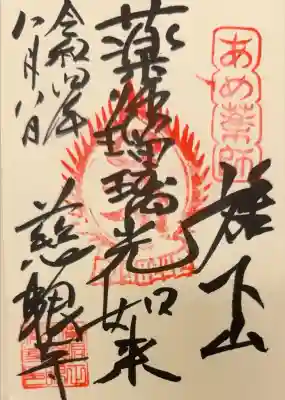 あめ薬師
下山
薬師瑠璃光如来
慈観寺
令和四年
八月八日